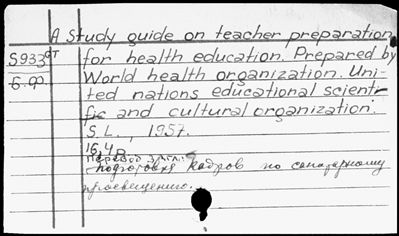 A Study guide on teacher preparation
S933 ст for health education. Prepared by
б.О. World health organization. Uni-
ted nations educational scienti-
fic and cultural organization.
S.L., 1957.
16,4 р
Перевод загл:
подготовка кадров по санитарному
просвещению.